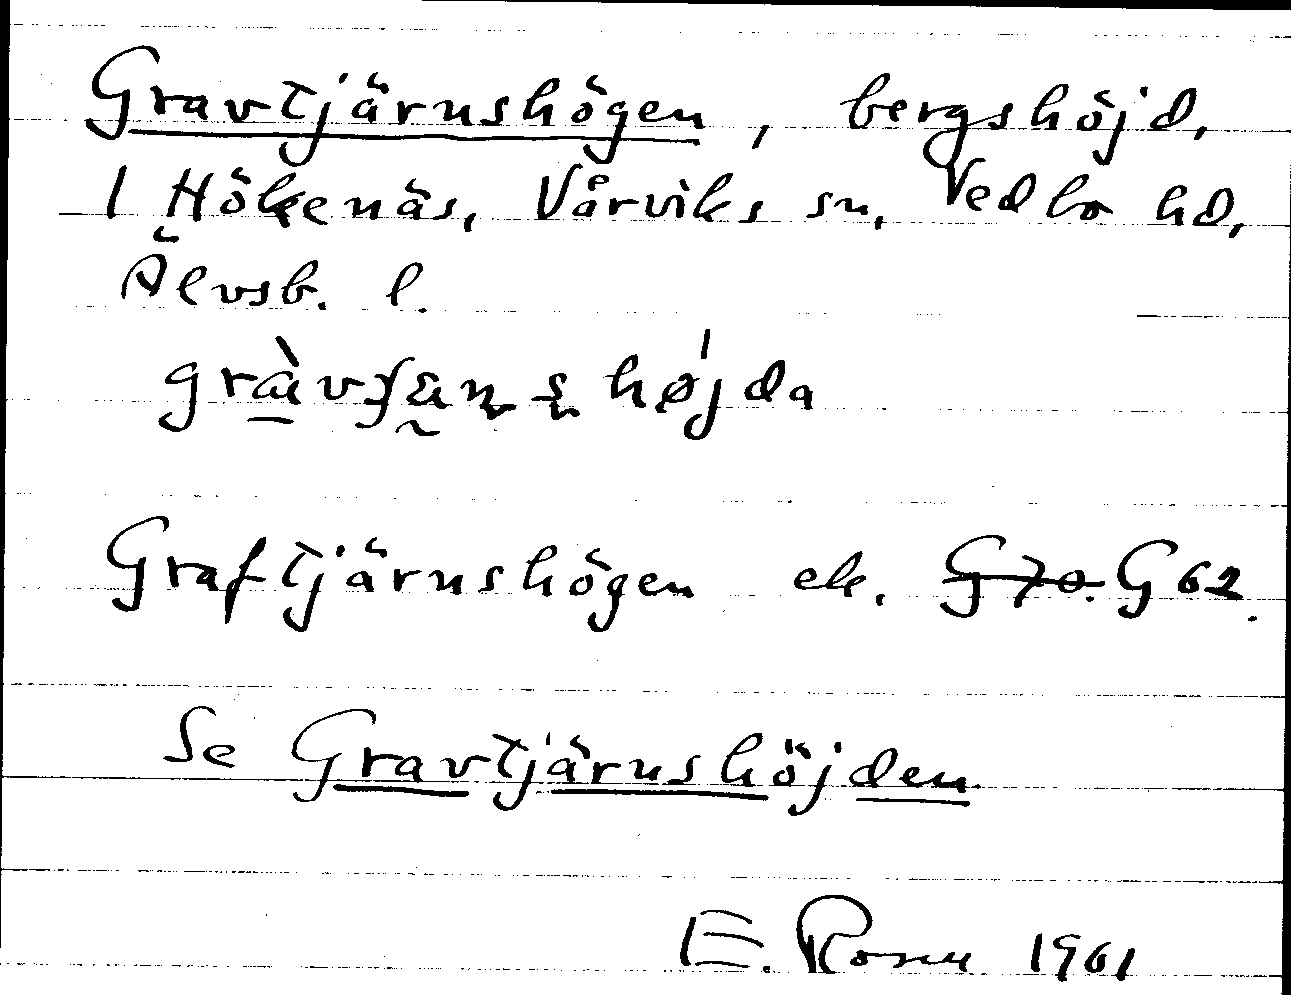 Gravtjärnshögen, bergshöjd,
1 Hökenäs, Vårviks sn, Vedbo hd,
Älvsb. l.
Graftjärnshögen ek. G 70. G 62.
Se Gravtjärnshöjden.
E. 1961